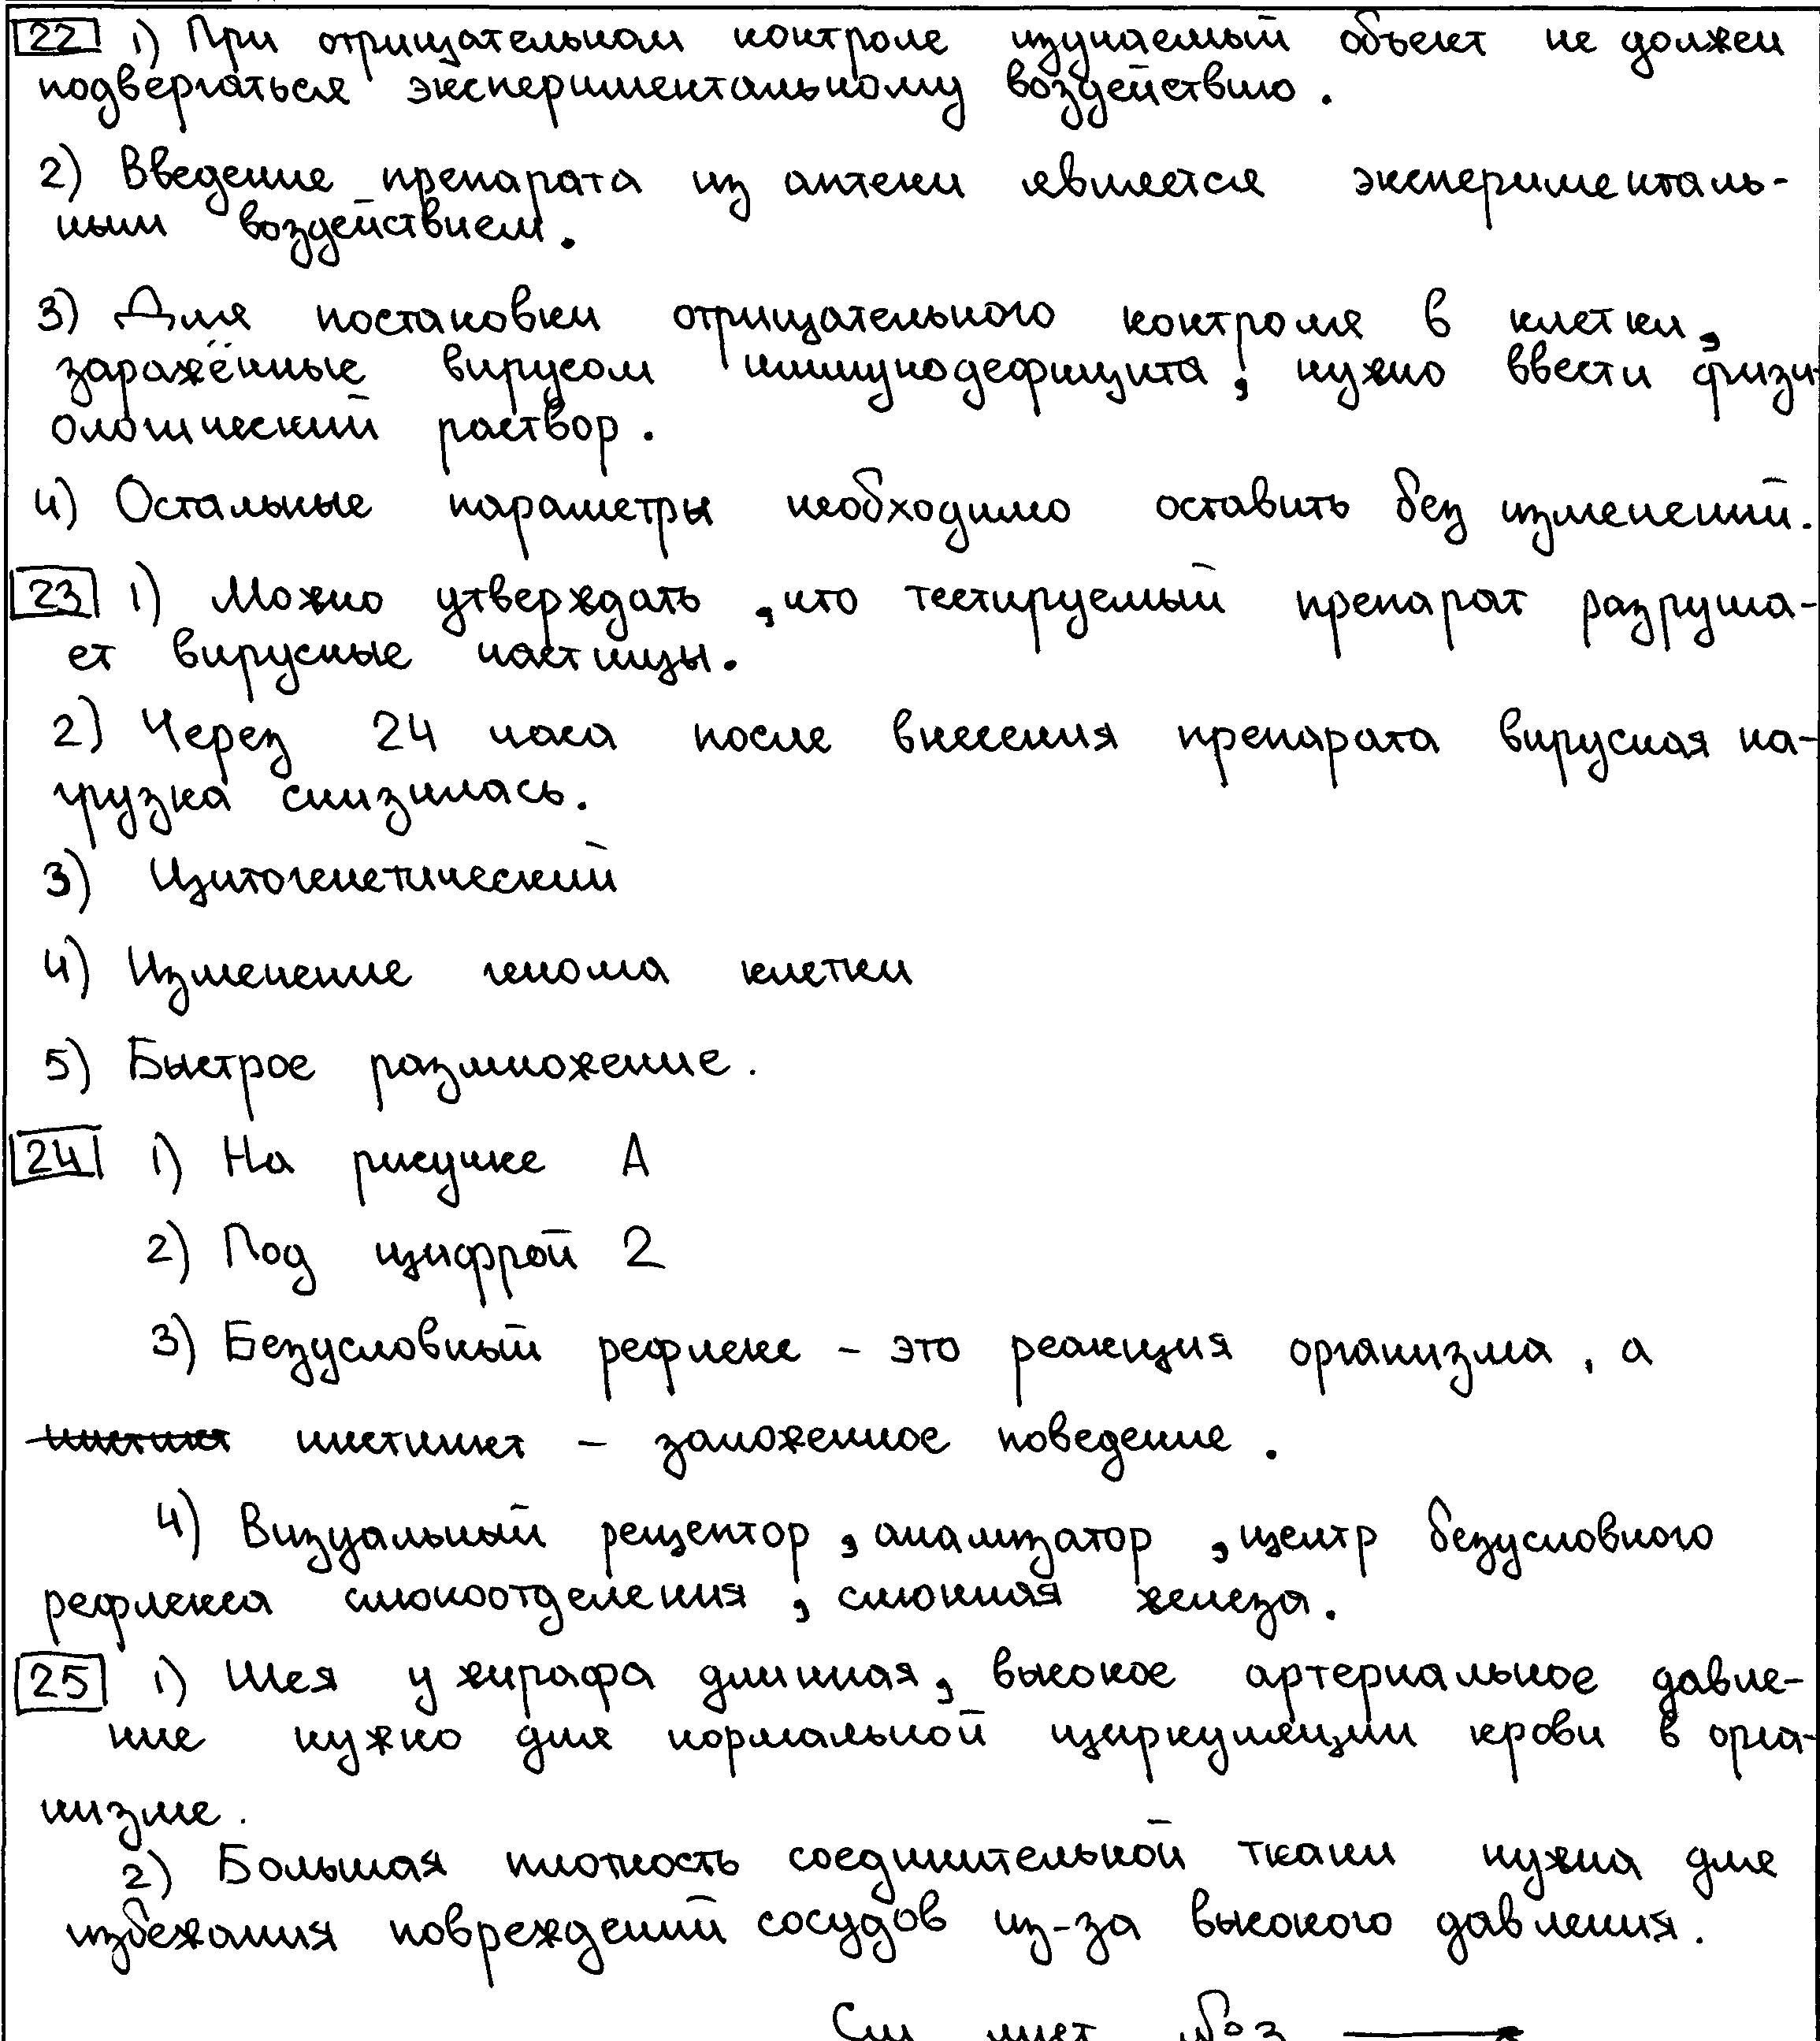 22 1) При отрицательном контроле изучаемый объект не должен
подвергаться экспериментальному воздействию.
2) Введение препарата из аптеки является эксперименталь-
ным воздействием.
3) Для постановки отрицательного контроля в клетки,
заражённые вирусом иммунодефицита, нужно ввести физи
ологический раствор.
4) Остальные параметры необходимо оставить без изменений.
23 1) Можно утверждать, что тестируемый препарат разруша-
ет вирусные частицы.
2) Через 24 часа после внесения препарата вирусная на-
грузка снизилась.
3) Цитогенетический
4) Изменение генома клетки
5) Быстрое размножение.
24 1) На рисунке А
2) Под цифрой 2
3) Безусловный рефлекс - это реакция организма, а
инстинкт - заложенное поведение.
4) Визуальный рецептор, анализатор, центр безусловного
рефлекса слюноотделения, слюнная железа.
25 1) Шея у жирафа длинная, высокое артериальное давле-
ние нужно для нормальной циркуляции крови в орга-
низме.
2) Большая плотность соединительной ткани нужна для
избежания повреждений сосудов из-за высокого давления.
См лист